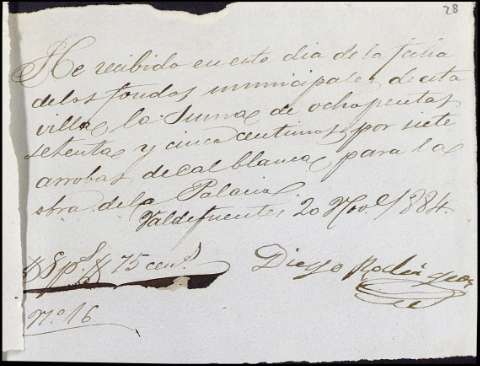 28
He recibido en este dia de la fecha
de los fondos municipales de esta
villa la Suma de ocho pesetas
setenta y cinco centimos por siete
arrobas de cal blanca para la
obra de la Palacia
Valdefuentes 20 Nov.e 1884.
8 p.s 75 cen.s
Diego Rodriguez
N.o 16